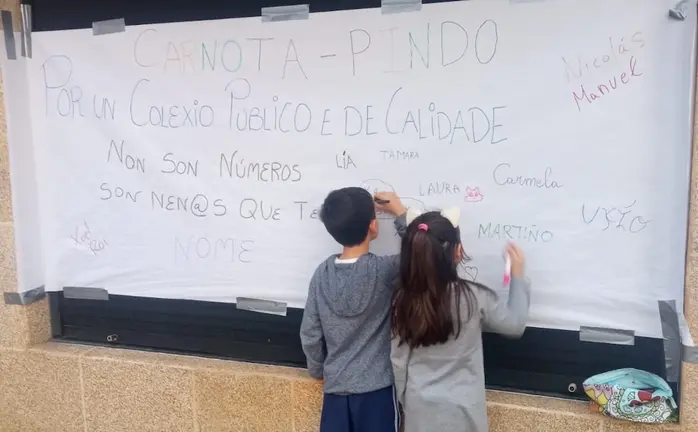 CARNOTA-PINDO
Nicolás
Manuel
POR UN COLEXIO PÚBLICO E DE CALIDADE
NON SON NÚMEROS
LÍA
TAMARA
SON NEN@S QUE TE
LAURA
Carmela
MARTIÑO
NOME